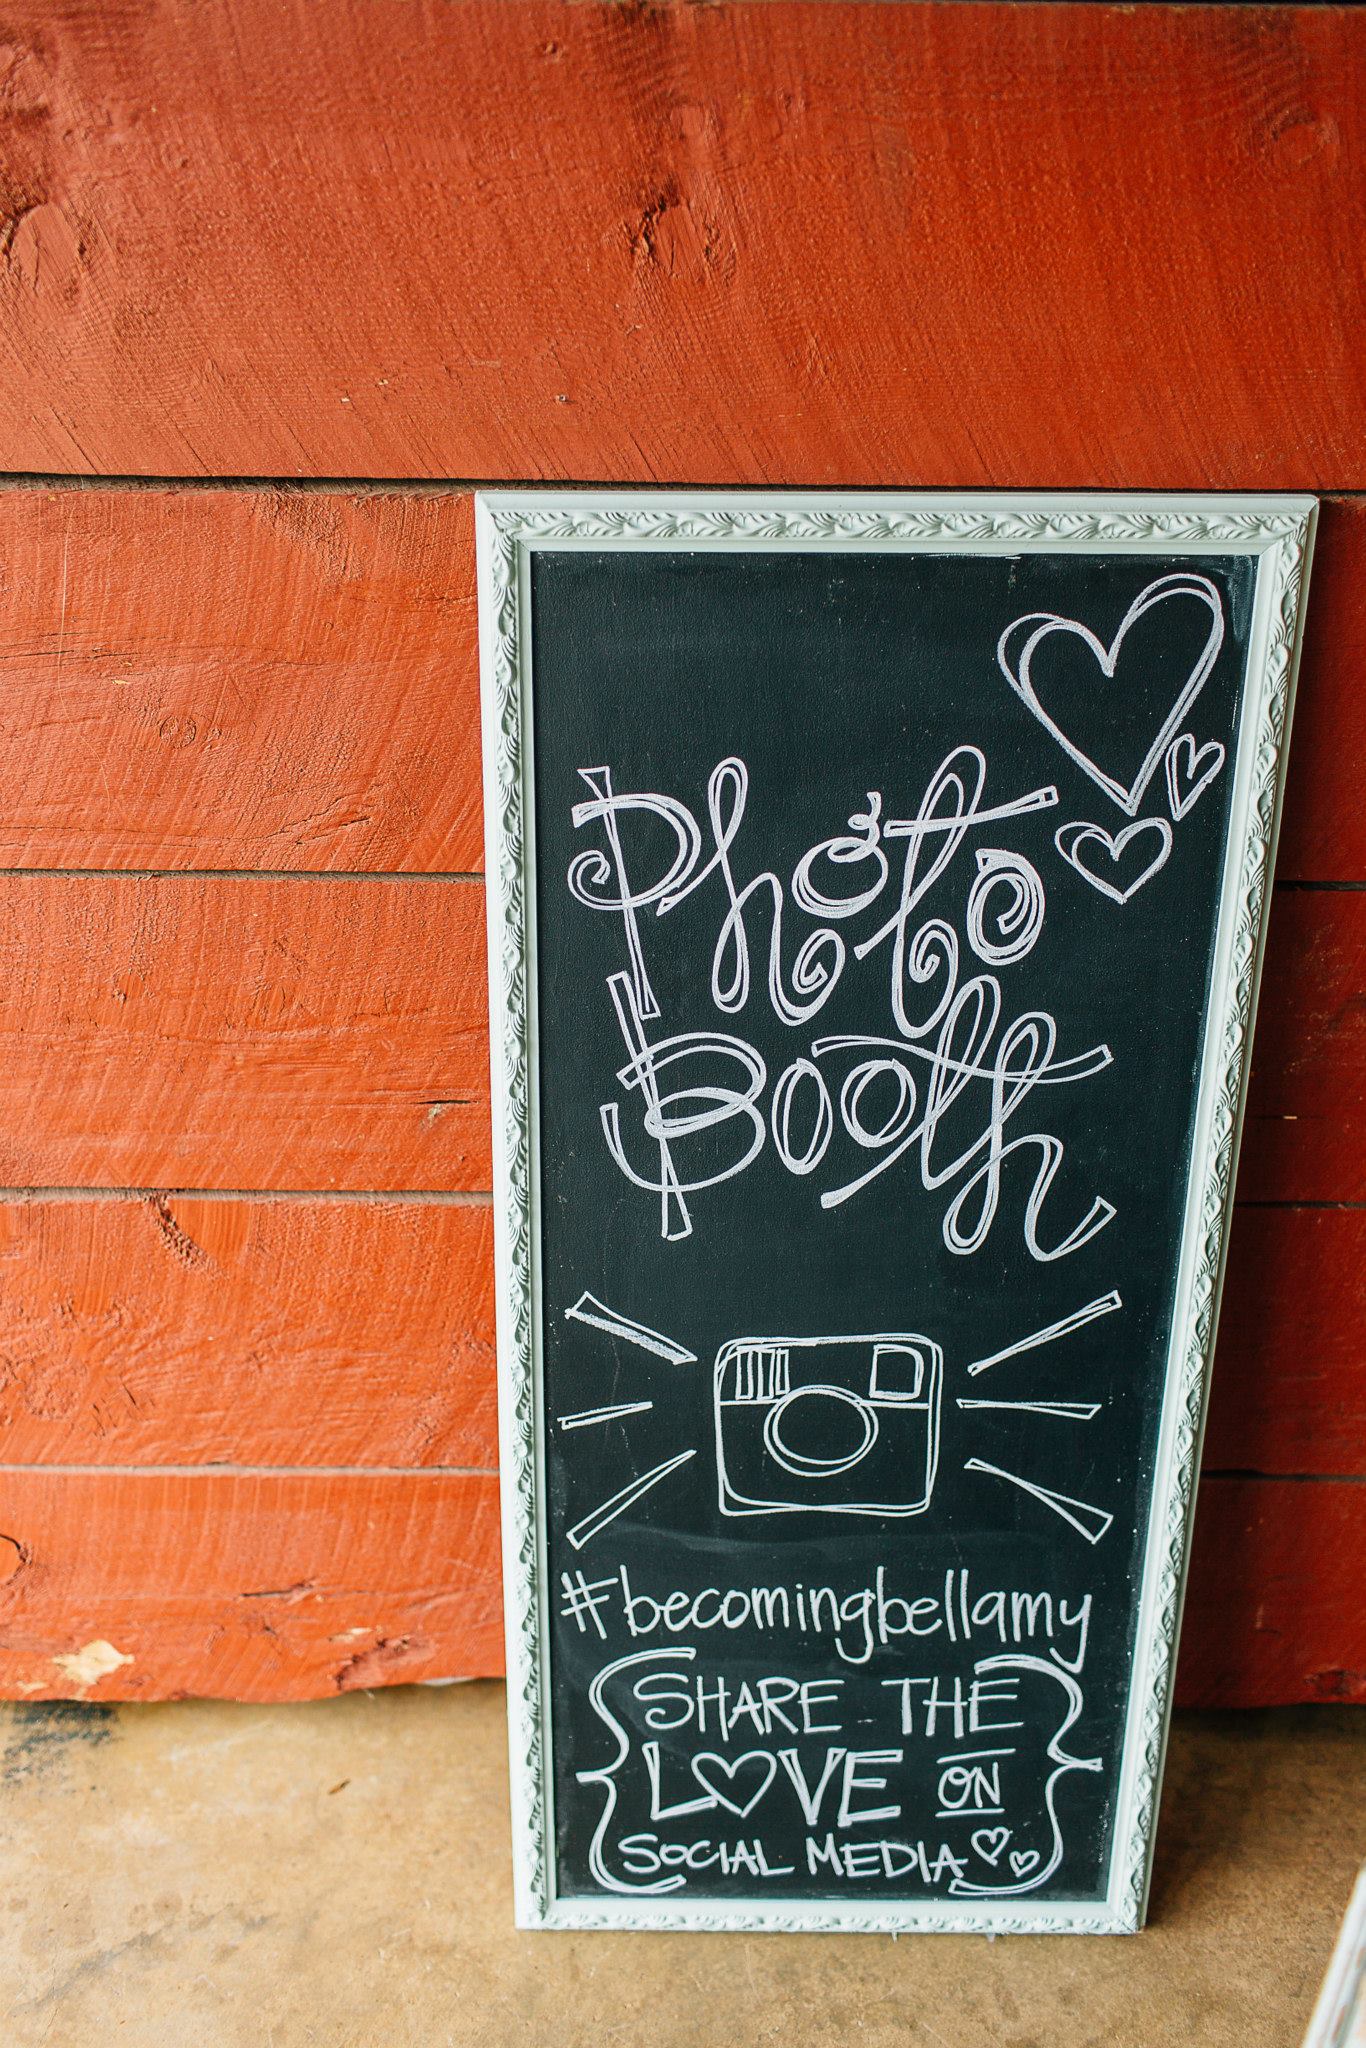 Photo
Booth
#becomingbellamy
SHARE THE
LOVE ON
SOCIAL MEDIA